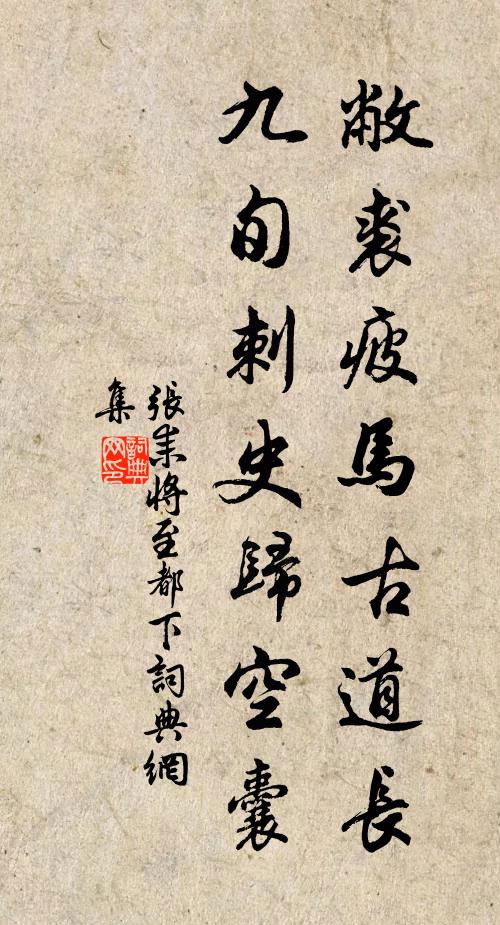 敝裘疲馬古道長
九旬刺史歸空囊
張耒將至都下詞典網
集
詞典網印